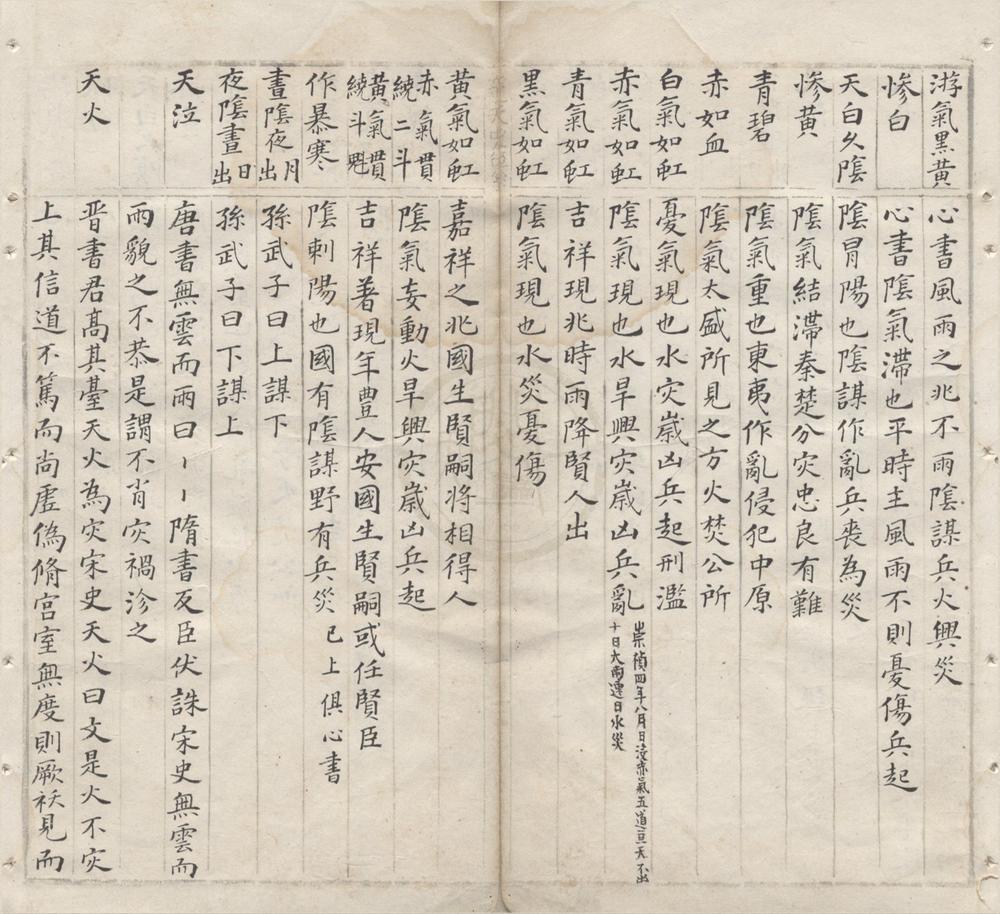 游氣黑黃 心書風雨之兆不雨陰謀兵火興災
慘白 心書陰氣滯也平時主風雨不則憂傷兵起
天白久陰 陰冐陽也陰謀作亂兵喪為災
慘黃 陰氣結滯秦楚分灾忠良有難
青碧 陰氣重也東夷作亂侵犯中原
赤如血 陰氣太盛所見之方火焚公所
白氣如虹 憂氣現也水灾嵗凶兵起刑濫
赤氣如虹 陰氣現也水旱興灾嵗凶兵亂 崇禎四年八月日沒赤氣五道亘天不出
十日大雨連日水災
青氣如虹 吉祥現兆時雨降賢人出
黑氣如虹 陰氣現也水災憂傷
黃氣如虹 嘉祥之兆國生賢嗣將相得人
赤氣貫繞二斗 陰氣妄動火旱興灾嵗凶兵起
黃氣貫繞斗魁 吉祥著現年豊人安國生賢嗣或任賢臣
作暴寒 陰剌陽也國有陰謀野有兵災 已上俱心書
晝陰夜月出 孫武子曰上謀下
夜陰晝日出 孫武子曰下謀上
天泣 唐書無雲而雨曰〡〡隋書反臣伏誅宋史無雲而
雨貌之不恭是謂不肖灾禍沴之
天火 晋書君高其臺天火為灾宋史天火曰文是火不灾
上其信道不篤而尚虛偽脩宮室無度則厥袄見而